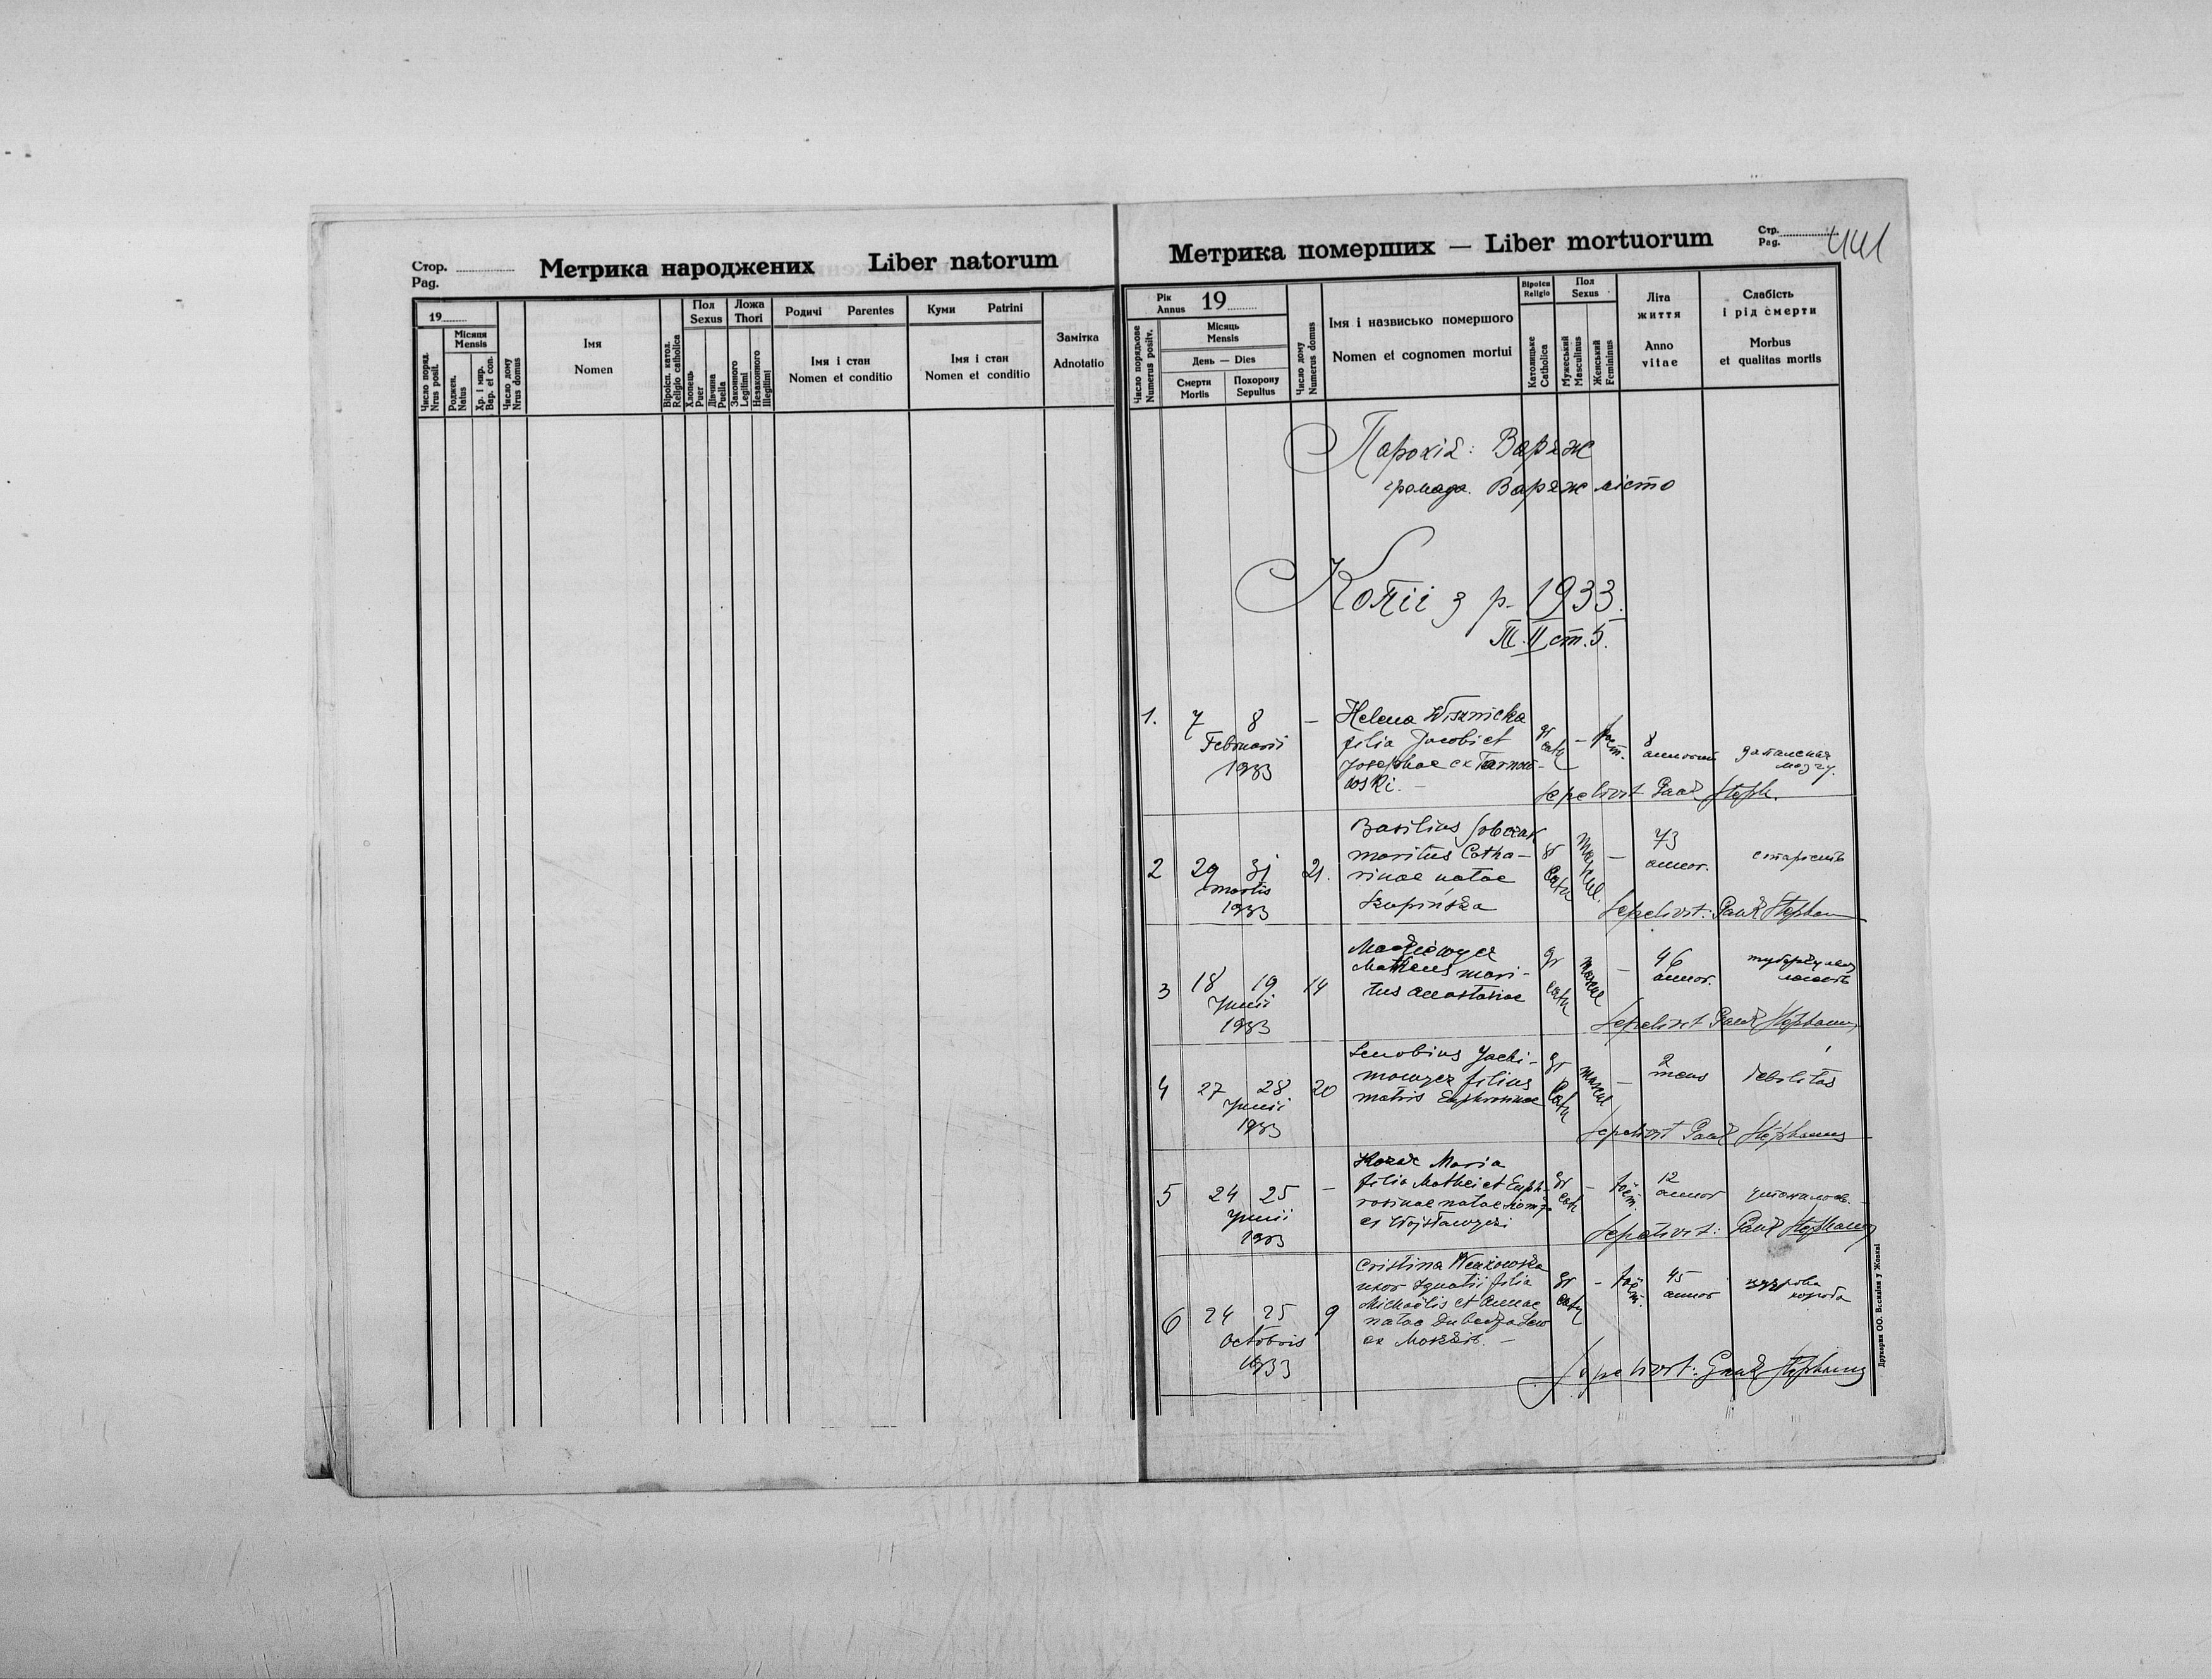 Стор.
Pag.
Метрика народжених Liber natorum
19
Число поряд.
Nrus posit.
Місяця
Mensis
Роджен.
Natus
Хр. і мир.
Bap. et con.
Число дому
Nrus domus
Імя
Nomen
Віроісп. катол.
Religio catholica
Пол
Sexus
Хлопець
Puer
Дівчина
Puella
Ложа
Thori
Законного
Legitimi
Незаконного
Illegitimi
Родичі Parentes
Імя і стан
Nomen et conditio
Куми Patrini
Імя і стан
Nomen et conditio
Замітка
Adnotatio
Метрика померших — Liber mortuorum
Стр.
Pag.
441
Рік
Annus 19
Число порядкове
Numerus positv.
Місяць
Mensis
День — Dies
Смерти
Mortis
Похорону
Sepultus
Число дому
Numerus domus
Імя і назвисько помершого
Nomen et cognomen mortui
Віроісп
Religio
Католицьке
Catholica
Пол
Sexus
Мужеський
Masculinus
Женський
Femininus
Літа
життя
Anno
vitae
Слабість
і рід смерти
Morbus
et qualitas mortis
Парохія: Варяж
громада. Варяж місто
Копії з р. 1933.
Т. II ст. 5.
1. 7 8 —
Februarii
1933
Helena Wisznicka
filia Jacobi et
Josephae ex Tarnow-
wski. —
gr
cath
—
foem.
8
annorum
запалення
мозгу.
Sepelivit Pauk Steph.
2 29 31 21.
Martis
1933
Basilius Sobczak
maritus Catha-
rinae natae
Szupińska
gr
Cath
mascul.
—
73
annor.
старість
Sepelivit: Pauk Stephan
3 18 19 14
Junii
1933
Matheus mari-
tus Anastasiae
gr
cath
mascul
—
46
annor.
Sepelivit Pauk Stephanus
4 27 28 20
Junii
1933
Zenobius Jachi-
mowycz filius
matris Euphrosinae
gr
Cath
mascul
—
2
mens
debilitas
Sepelivit Pauk Stephanus
5 24 25 —
Junii
1933
Kozak Maria
filia Mathei et Euph-
rosinae natae
gr
cath
—
foem.
12
annor
Sepelivit: Pauk Stephanus
6 24 25 9
Octobris
1933
Cristina
uxor Ignatii filia
Michaëlis et Annae
natae
ex
gr
cath
—
foem.
45
annor
цукрова
хороба
Sepelivit: Pauk Stephanus
Друкарня ОО. Василіян у Жовкві